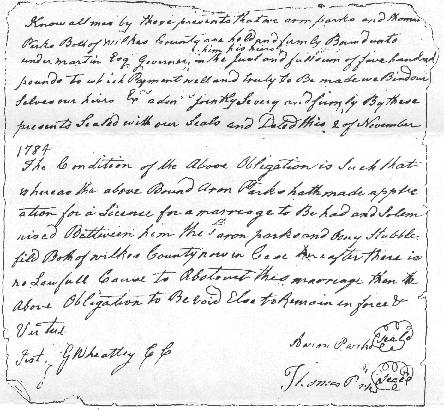 Know all men by these presents that we aron parks and thomas
Parks Both of Wilkes County are held and firmly Bound unto
him his heirs
under martin Esq Governer, in the Just and full sum of five hundred
pounds to which Payment well and truly to Be made we Bind our
Selves our heirs Exs admr Jointly Severly and firmly By these
presents Sealed with our Seals and Dated this 2 of November
1784
The Condition of the Above Obligation is Such that
whereas the above Bound Aron Parks hath made applic
ation for a Licence for a marreage to Be had and Solem
nised Bettween him the sd aron parks and Stubble-
field Both of wilkes County now in Case hereafter there is
no Lawfull Cause to Abstovet this marreage then the
Above Obligation to Be void Else to Remain in force &
Virtue
Test, G Wheatley C C
Aaron Parks Seal
Thomas Parks Seal